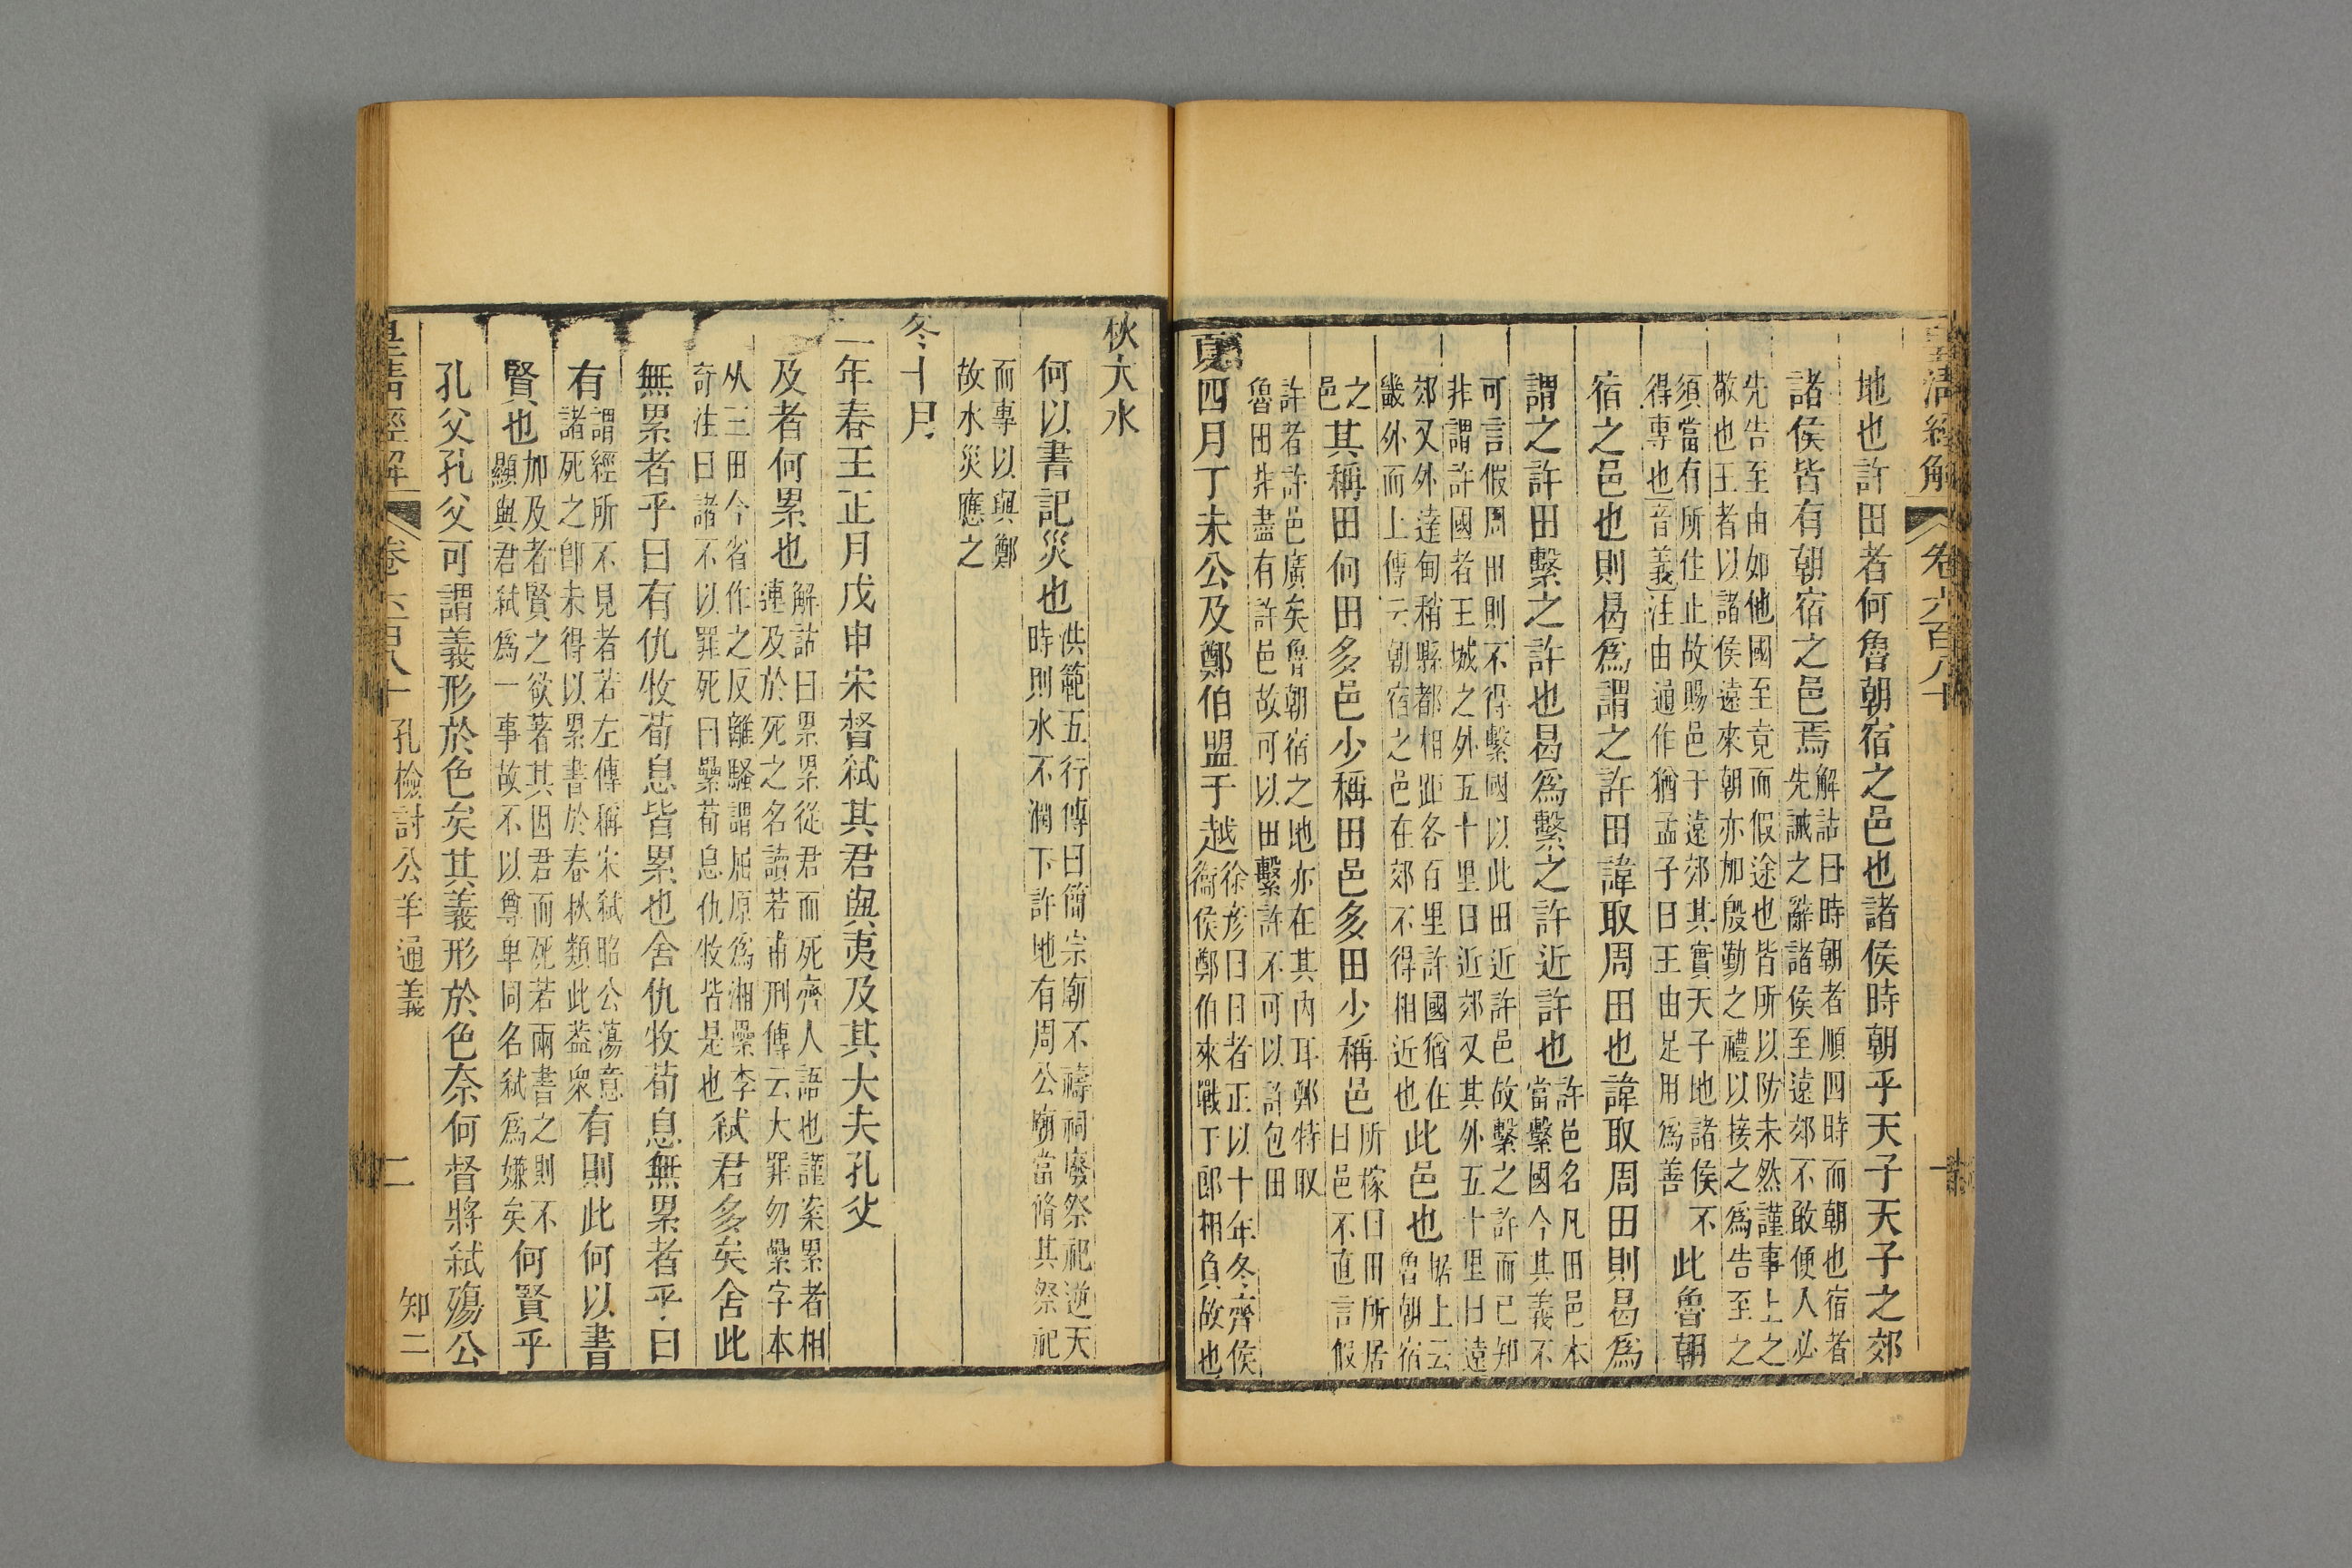 皇清經解 卷六百八十 一
地也許田者何魯朝宿之邑也諸侯時朝乎天子天子之郊
諸侯皆有朝宿之邑焉解詁曰時朝者順四時而朝也宿者先誡之辭諸侯至遠郊不敢便人必
先告至由如他國至竟而假途也皆所以防未然謹事上之敬也王者以諸侯遠來朝亦加殷勤之禮以接之爲告至之
須當有所住止故賜邑于遠郊其實天子地諸侯不得專也音義注由通作猶孟子曰王由足用爲善此魯朝
宿之邑也則曷爲謂之許田諱取周田也諱取周田則曷爲
謂之許田繫之許也曷爲繫之許近許也許邑名凡田邑本當繫國今其義不
可言假周田則不得繫國以此田近許邑故繫之許而已知非謂許國者王城之外五十里曰近郊又其外五十里曰遠
郊又外達甸稍縣都相距各百里許國猶在畿外而上傳云朝宿之邑在郊不得相近也此邑也据上云魯朝宿
之邑其稱田何田多邑少稱田邑多田少稱邑所稼曰田所居曰邑不直言假
許者許邑廣矣魯朝宿之地亦在其內耳鄭特取魯田非盡有許邑故可以田繫許不可以許包田
夏四月丁未公及鄭伯盟于越徐彥曰日者正以十年冬齊侯衞侯鄭伯來戰于郎相負故也
秋大水
何以書記災也洪範五行傳曰簡宗廟不禱祠廢祭祀逆天時則水不潤下許地有周公廟當脩其祭祀
而專以與鄭故水災應之
冬十月
二年春王正月戊申宋督弒其君與夷及其大夫孔父
及者何累也解詁曰累累從君而死齊人語也謹案累者相連及於死之名讀若甫刑傳云大罪勿纍字本
从三田今省作之反離騷謂屈原爲湘纍李奇注曰諸不以罪死曰纍荀息仇牧皆是也弒君多矣舍此
無累者乎曰有仇牧荀息皆累也舍仇牧荀息無累者乎曰
有謂經所不見者若左傳稱宋弒昭公蕩意諸死之卽未得以累書於春秋類此葢衆有則此何以書
賢也加及者賢之欲著其因君而死若兩書之則不顯與君弒爲一事故不以尊卑同名弒爲嫌矣何賢乎
孔父孔父可謂義形於色矣其義形於色奈何督將弒殤公
皇清經解 卷六百八十 孔檢討公羊通義 二 知二